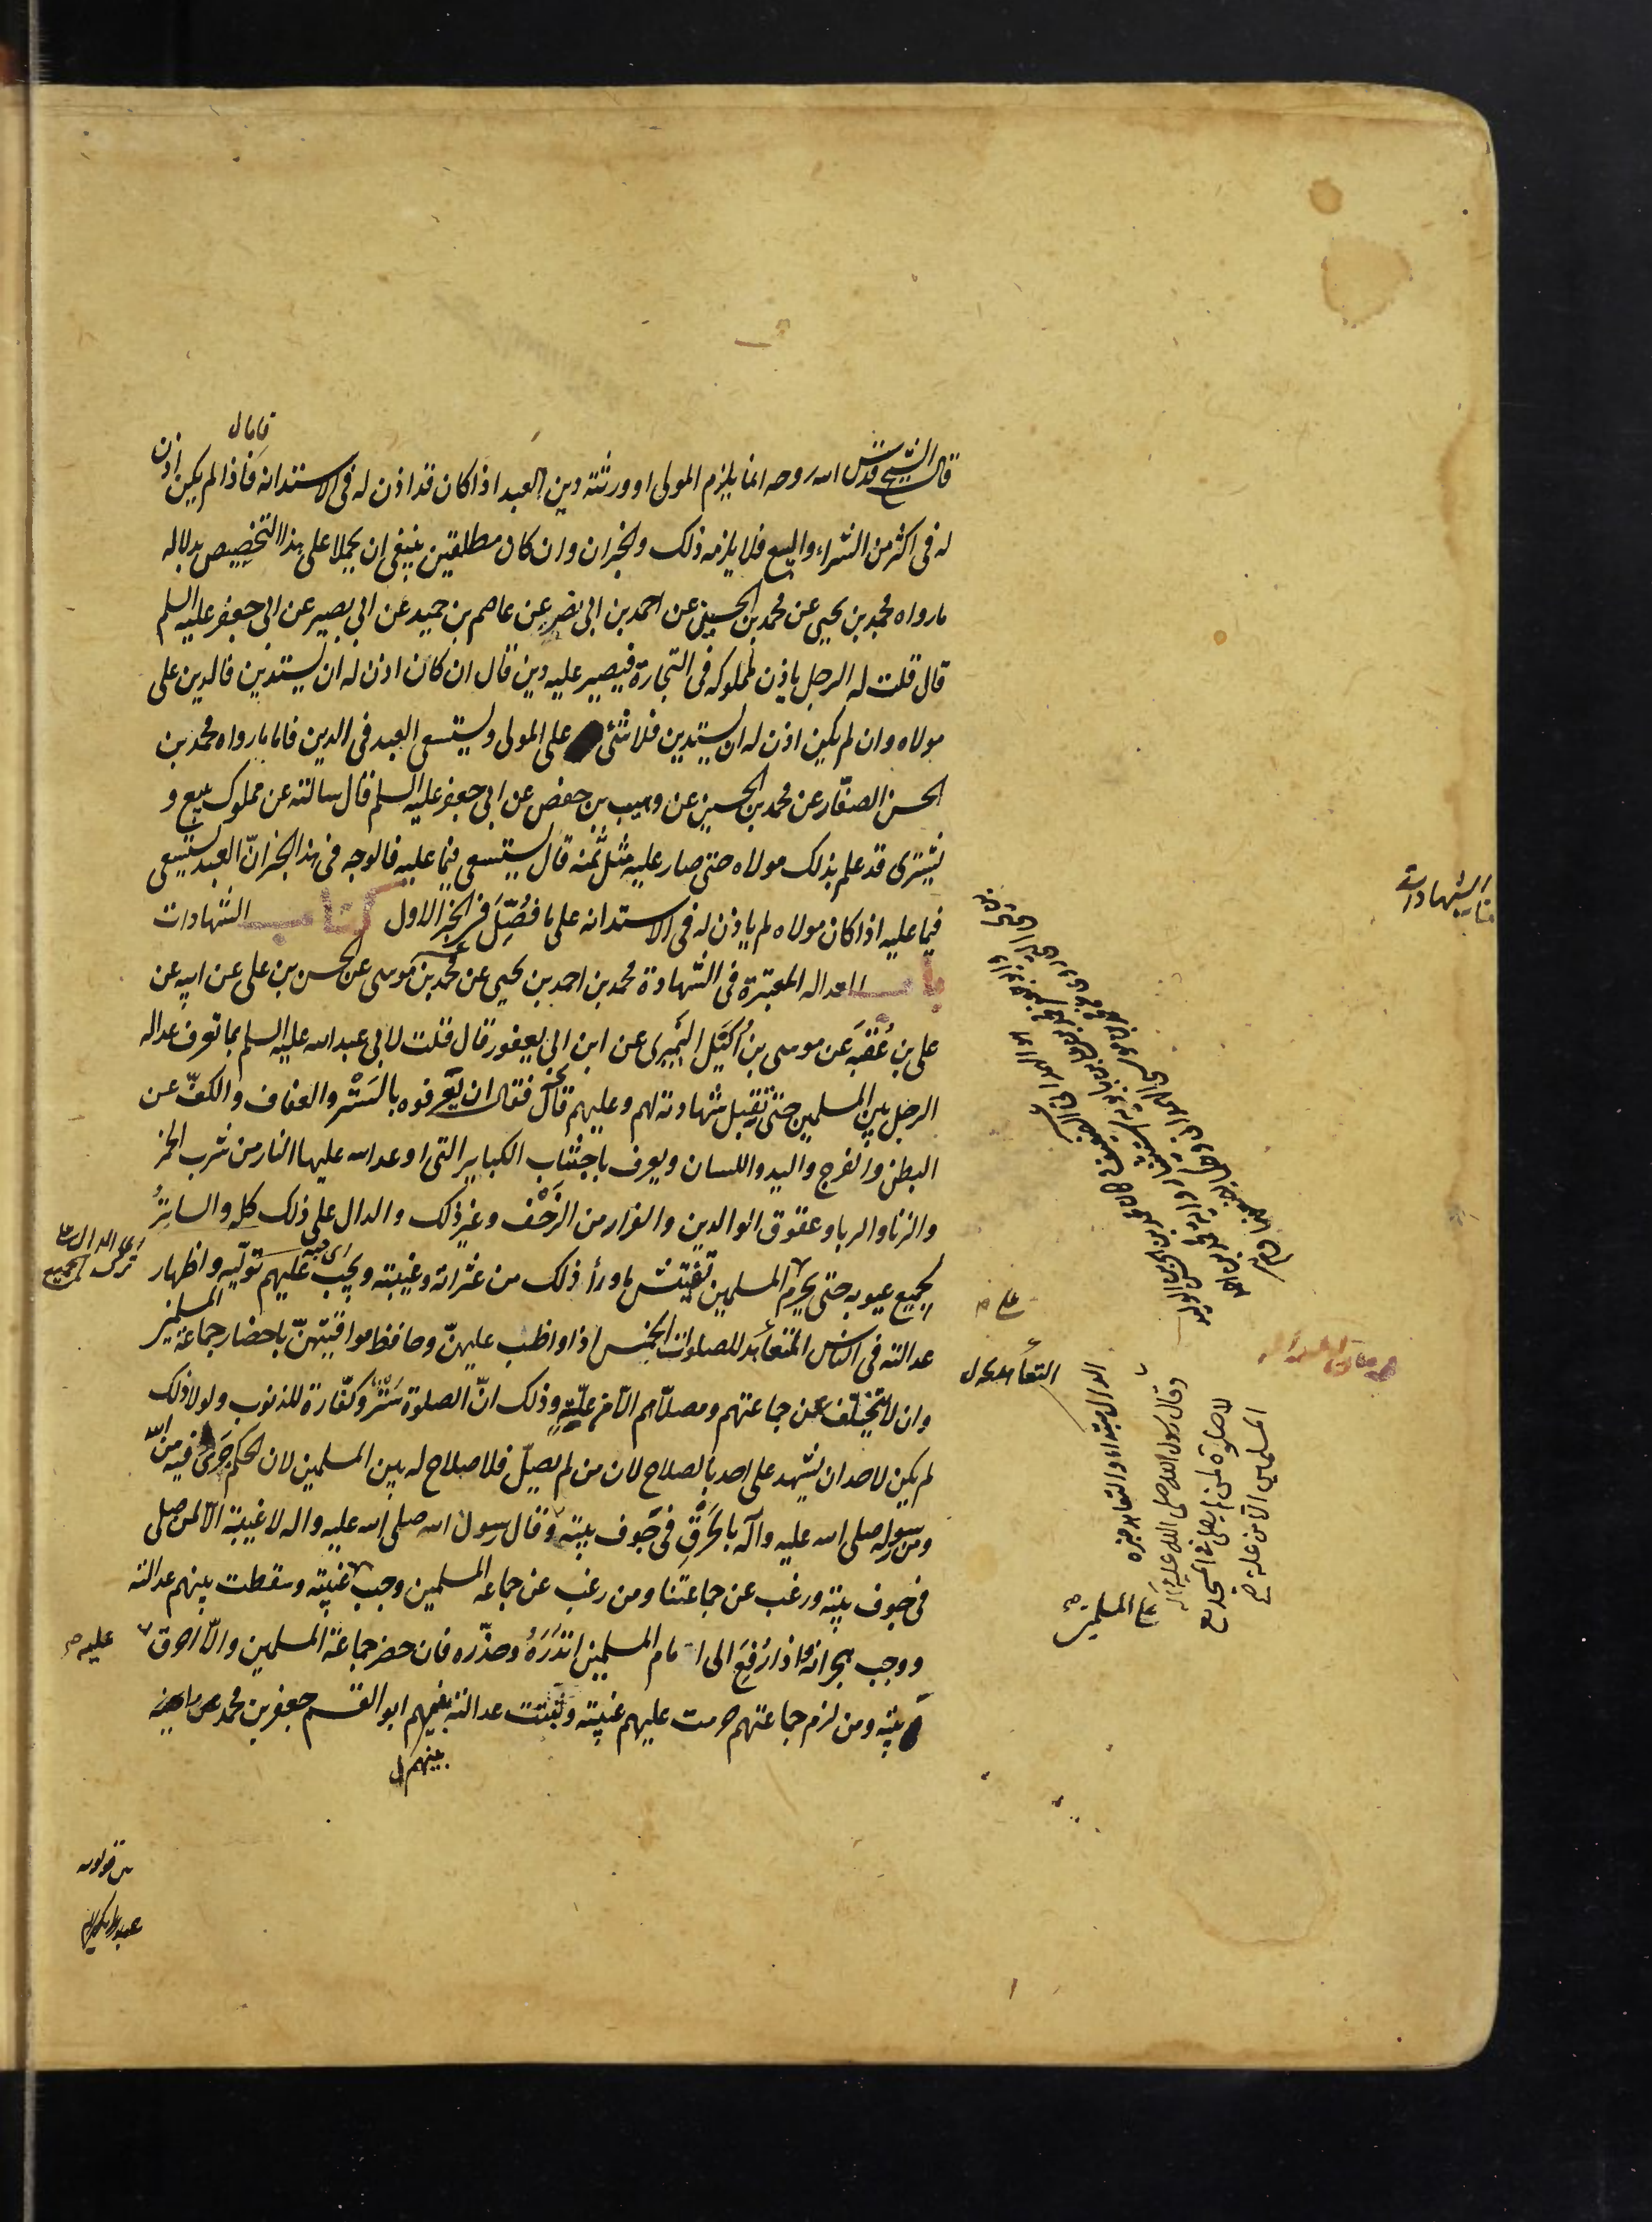 قال الشيخ قدس الله روحه انما يلزم المولى او ورثته دين العبد اذا كان قد اذن له فى الاستدانة فاذا لم يكن اذن
له فى اكثر من الشراء والبيع فلا يلزمه ذلك والخبران وان كان مطلقين ينبغى ان يحملا على هذا التخصيص بدلاله
ما رواه محمد بن يحيى عن محمد بن الحسين عن احمد بن ابى نصر عن عاصم بن حميد عن ابى بصير عن ابى جعفر عليه السلم
قال قلت له الرجل ياذن لمملوكه فى التجارة فيصير عليه دين قال ان كان اذن له ان يستدين فالدين على
مولاه وان لم يكن اذن له ان يستدين فلا شئ على المولى ويستسعى العبد فى الدين فاما ما رواه محمد بن
الحسن الصفّار عن محمد بن الحسين عن وهيب بن حفص عن ابى جعفر عليه السلم قال سالته عن مملوك يبيع و
يشترى قد علم بذلك مولاه حتى صار عليه مثل ثمنه قال يستسعى فيما عليه فالوجه فى هذا الخبر انّ العبد يستسعى
فيما عليه اذا كان مولاه لم ياذن له فى الاستدانه على ما فُصِّلَ فى الخبر الاول كتاب الشهادات
باب العداله المعتبرة فى الشهادة محمد بن احمد بن يحيى عن محمد بن موسى عن الحسن بن على عن ابيه عن
على بن عُقْبَه عن موسى بن اُكَيْل النُّمَيرى عن ابن ابى يعفور قال قلت لابى عبد الله عليه السلم بما تعرف عداله
الرجل بين المسلمين حتى تقبل شهادته لهم وعليهم قال فقال ان يعرفوه بالسَتْر والعفاف والكفّ عن
البطن والفرج واليد واللسان ويعرف باجتناب الكباير التى اوعد الله عليها النار من شرب الخمر
والزنا والربا وعقوق الوالدين والفرار من الزَحْف وغير ذلك والدال على ذلك كله والساترُ
لجميع عيوبه حتى يحرم المسلمين تفتيش ما وراء ذلك من عثراته وغيبته ويجب عليهم توليه واظهار
عدالته فى الناس المتعاهد للصلوات الخمس اذا واظب عليهنّ وحافظ مواقيتهنّ باحضار جماعة المسلمين
وان لا يتخلف عن جماعتهم ومصلّاهم الّا من علّةٍ وذلك انّ الصلوة سَتْرٌ وكفّارة للذنوب ولولا ذلك
لم يكن لاحد ان يشهد على احد بالصلاح لان من لم يصلّ فلا صلاح له بين المسلمين لان الحكم جَرَى فيه من الله
ومن رسوله صلى الله عليه وآله بالحَرْقِ فى جَوف بيته وقال رسول الله صلى الله عليه واله لا غيبة الّا لمن صلى
فى جوف بيته ورغب عن جماعتنا ومن رغب عن جماعه المسلمين وجب غيبته وسقطت بينهم عدالته
ووجب هجرانه واذا رُفِعَ الى امام المسلمين انذَرَهُ وحذّره فان حضر جماعة المسلمين والّا احرق
بيته ومن لزم جماعتهم حرمت عليهم غيبته وثبتت عدالته بينهم ابو القسم جعفر بن محمد
عليه
بينهم
الشهادات
على
التعاهد
الدال مبتدا والتعاهد خبره
وقال رسول الله صلى الله عليه وآله
لا صلوة لمن لا يصلى فى المسجد مع
المسلمين الّا من علة
على المسلمين